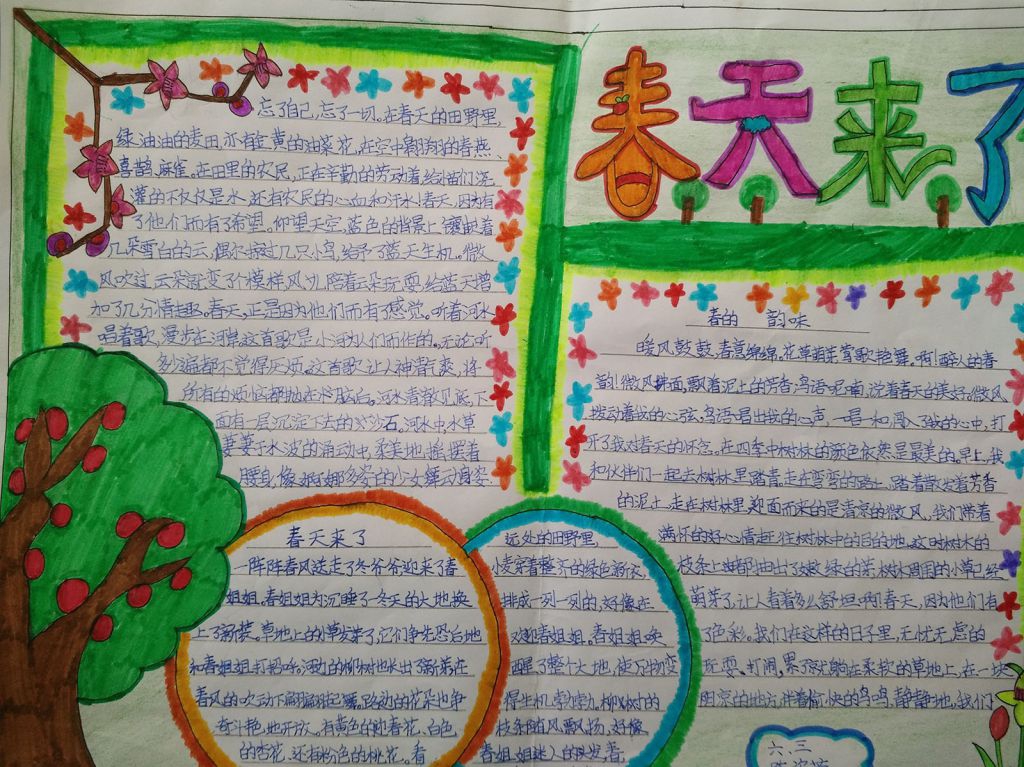 春天来了
忘了自己,忘了一切。在春天的田野里,
绿油油的麦田,亦有金黄的油菜花,在空中翱翔的春燕、
喜鹊、麻雀。在田里的农民,正在辛勤的劳动着,给苗们浇
灌的不仅仅是水,还有农民的心血和汗水!春天,因为有
了他们而有了希望。仰望天空,蓝色的背景上镶嵌着
几朵雪白的云,偶尔掠过几只小鸟,给予了蓝天生机。微
风吹过,云朵变了个模样,风儿陪着云朵玩耍,给蓝天增
加了几分情趣。春天,正是因为他们而有了感觉。听着河水
唱着歌,漫步在河岸,这首歌是小河为人们而作的。无论听
多少遍都不觉得厌烦,这首歌让人神清气爽,将
所有的烦恼都抛在脑后。河水清澈见底,下
面有一层沉淀下去的沙石。河水中水草
萋萋于水波的涌动中,柔美地摇摆着
腰身,像婀娜多姿的少女舞云身姿
春天来了
一阵阵春风送走了冬爷爷迎来了春
姐姐。春姐姐为沉睡了一冬天的大地换
上了新装。草地上的小草发芽了,它们争先恐后地
和春姐姐打招呼。河边的柳树也长出了新芽在
春风的吹动下翩翩起舞。路边的花朵也争
奇斗艳地开放。有黄色的迎春花,白色
的杏花,还有粉色的桃花。春
远处的田野里,
小麦穿着整齐的绿色新衣,
排成一列一列的,好像在
欢迎春姐姐。春姐姐唤
醒了整个大地,使万物变
得生机勃勃。柳树的
枝条随风飘扬,好像
春姐姐迷人的头发,春
春的 韵味
暖风鼓鼓,春意绵绵。花草萌芽,莺歌艳舞。啊!醉人的春
韵!微风拂面,飘着泥土的芳香;鸟语呢喃,说着春天的美好。微风
拨动着我的心弦,鸟语唱出我的心声,一唱一和,闯入了我的心中,打
开了我对春天的怀念。在四季中树林的颜色依然是最美的。早上,我
和伙伴们一起去树林里踏青,走在弯弯的路上,踏着散发着芳香
的泥土,走在树林里,迎面而来的是清凉的微风,我们带着
满怀的好心情赶往树林中的目的地。这时树木的
枝条上也都抽出了嫩绿的芽,树木周围的小草已经
萌芽了,让人看着多么舒坦啊!春天,因为他们有
了色彩。我们在这样的日子里,无忧无虑的
玩耍、打闹,累了就躺在柔软的草地上,在一块
阴凉的地方,伴着愉快的鸟鸣,静静地,我们
六、三